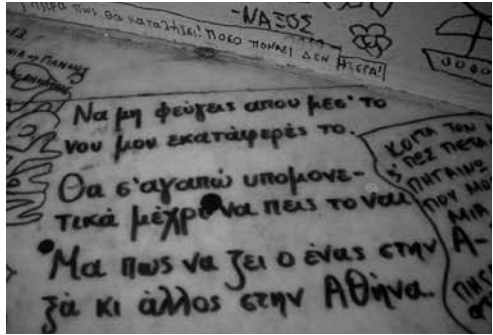 -ΝΑΞΟΣ
ΠΩΣ ΘΑ ΚΑΤΑΛΗΞΕΙ! ΠΟΣΟ ΠΟΝΑΕΙ ΔΕΝ ΗΞΕΡΑ!
Να μη φεύγεις απου μεσ' το
νου μου εκατάφερές το.
Θα σ'αγαπώ υπομονε-
τικά μέχρι να πεις το ναι
Μα πως να ζει ο ένας στην
ξά κι άλλος στην Αθήνα.
ΚΟΙΤΑ ΤΟΝ
ΠΕΣ ΠΕΤΑ
ΠΗΓΑΙΝΩ
ΠΟΥ ΜΟΥ
ΜΙΑ
Α-